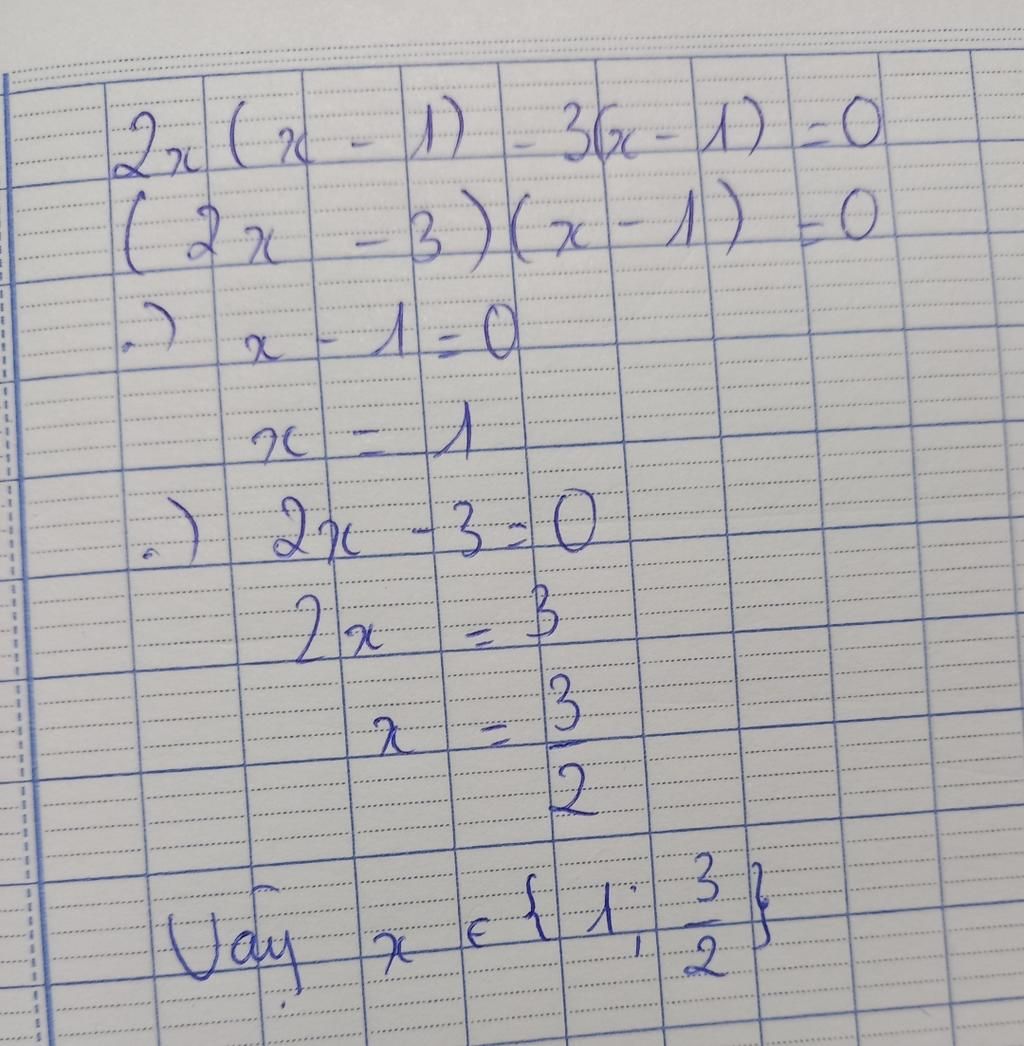 2x(x - 1) - 3(x - 1) = 0
(2x - 3)(x - 1) = 0
.) x - 1 = 0
x = 1
.) 2x - 3 = 0
2x = 3
x = 3/2
Vậy x ∈ {1; 3/2}